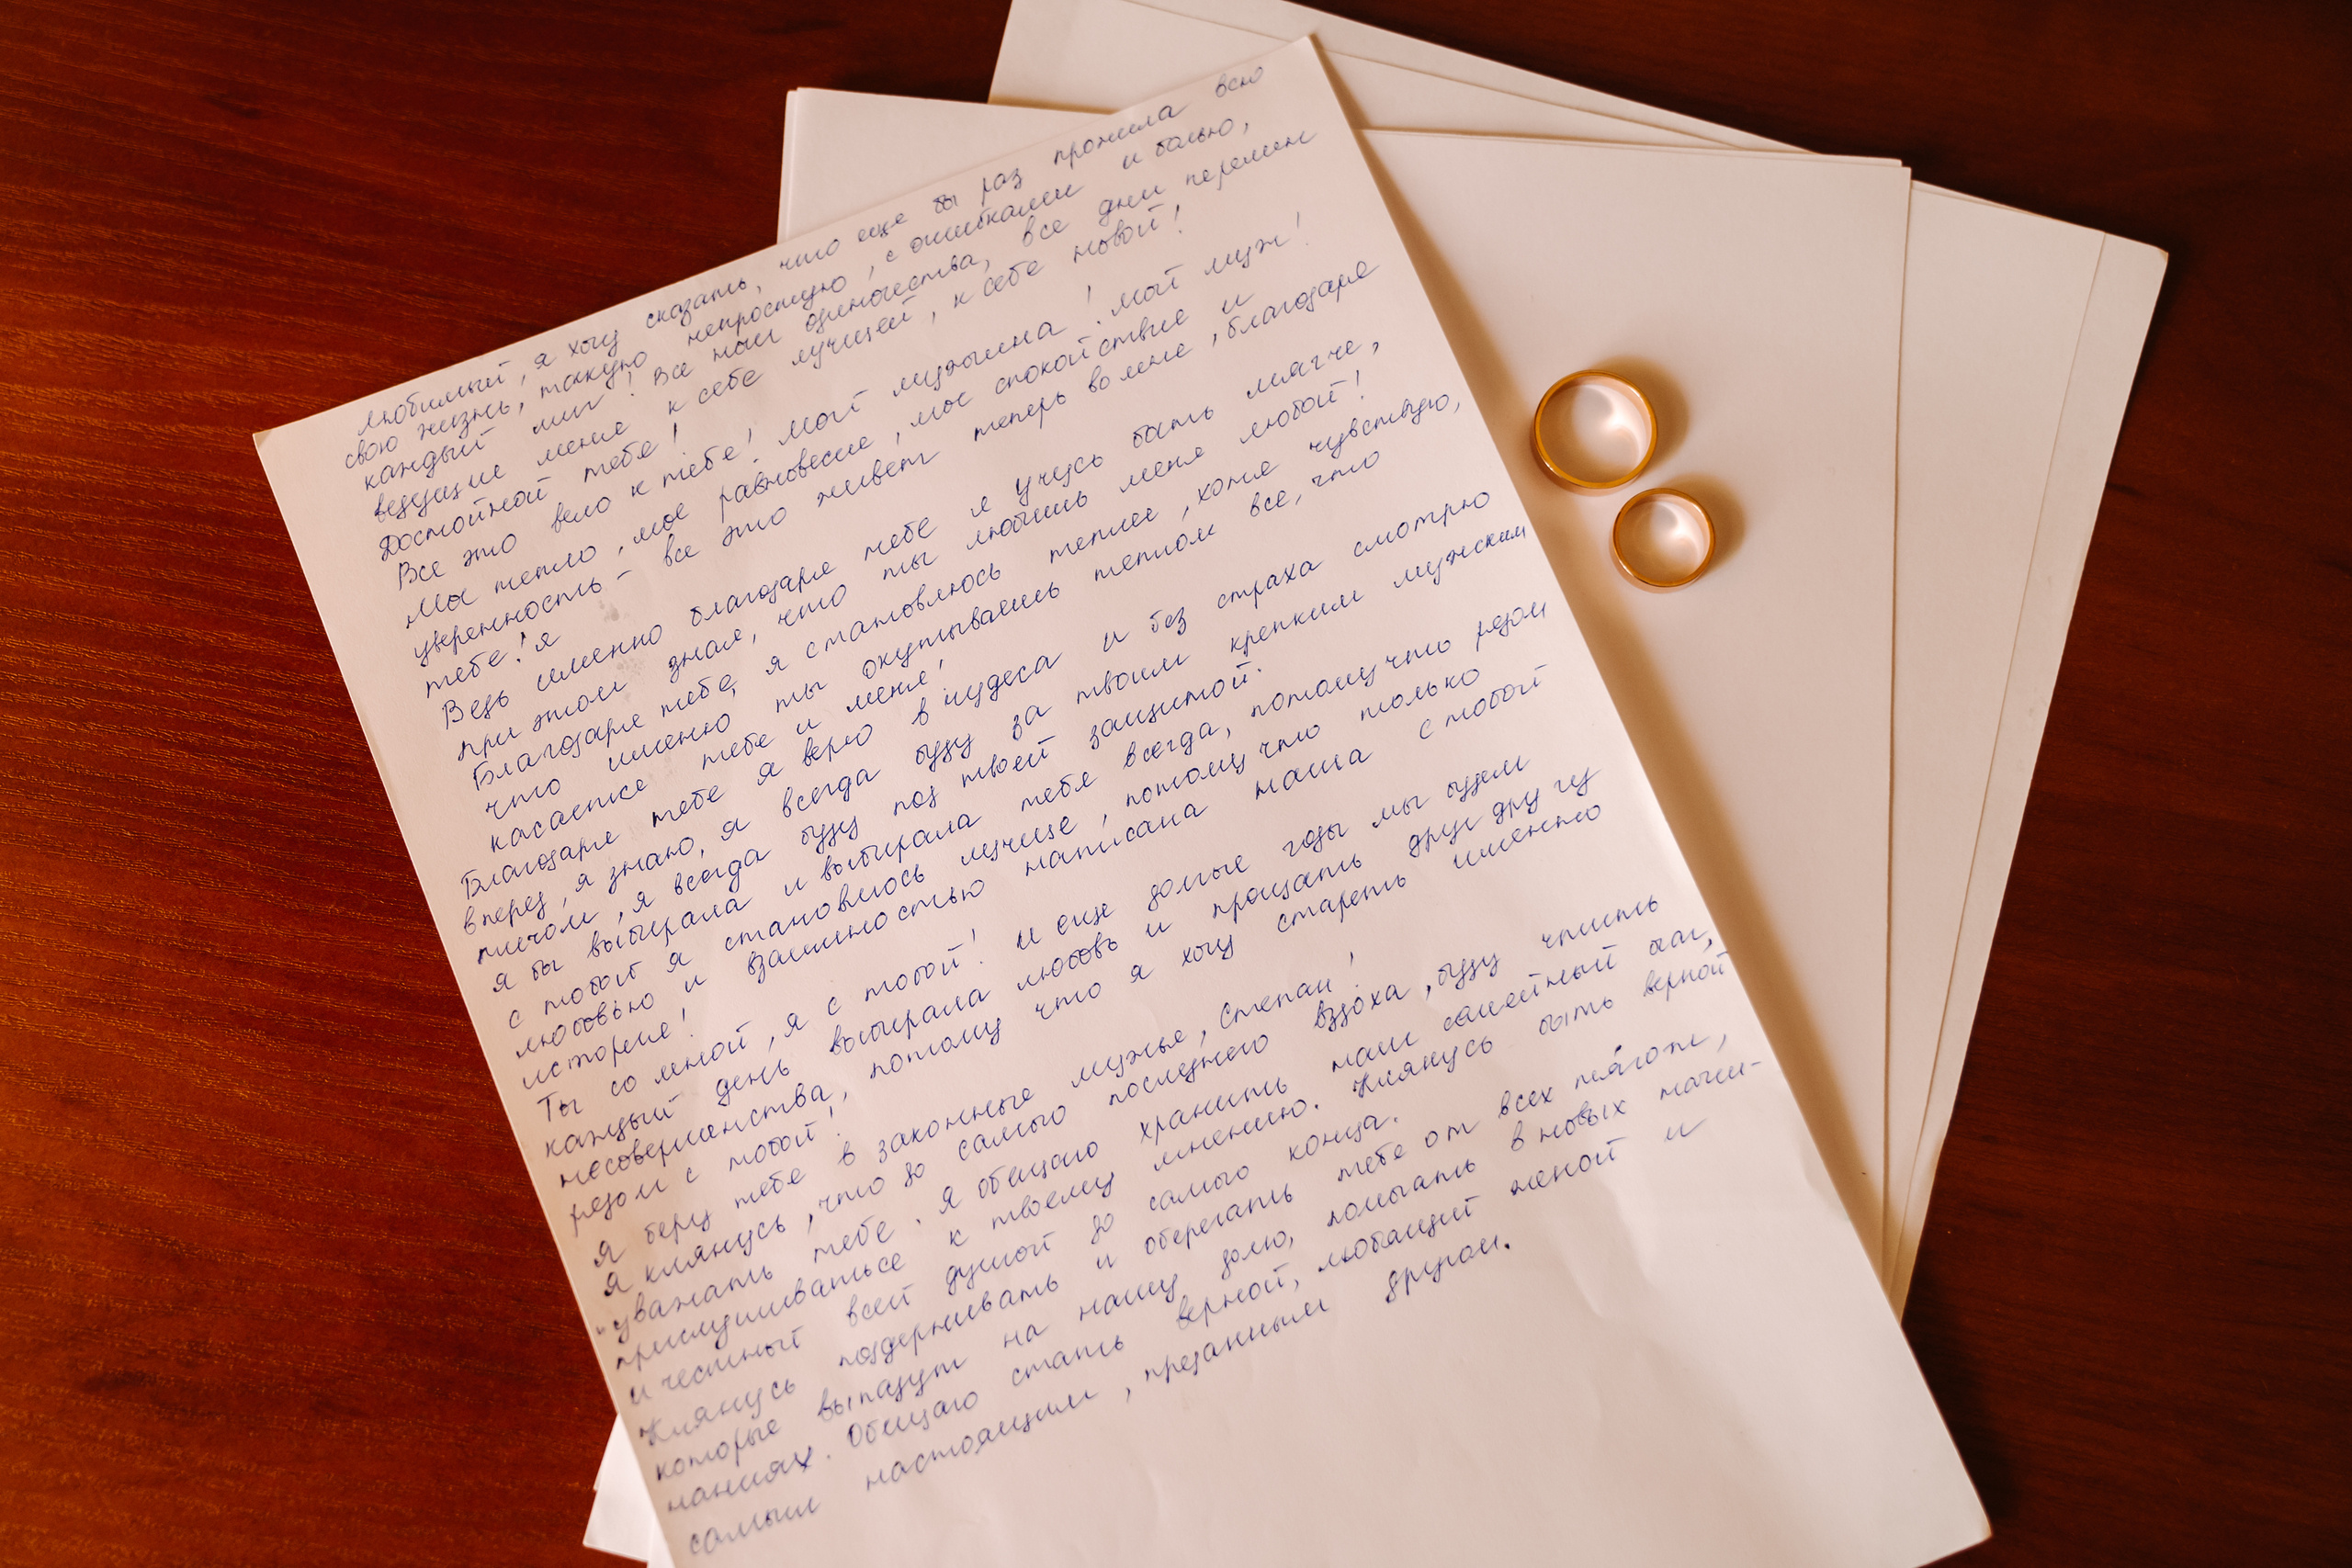 Любимый, я хочу сказать, что еще бы раз прожила всю
свою жизнь, такую непростую, с ошибками и болью,
каждый миг! Все мои одиночества, все дни перемен
ведущие меня к себе лучшей, к себе новой!
Достойной тебя!
Все это вело к тебе! Мой мужчина! Мой муж!
Мое тепло, мое равновесие, мое спокойствие и
уверенность - все это живет теперь во мне, благодаря
тебе! Я
Ведь именно благодаря тебе я учусь быть мягче,
при этом зная, что ты любишь меня любой!
Благодаря тебе, я становлюсь теплее, кожей чувствую,
что именно ты окутываешь теплом все, что
касается тебя и меня!
Благодаря тебе я верю в чудеса и без страха смотрю
вперед, я знаю, я всегда буду за твоим крепким мужским
плечом, я всегда буду под твоей защитой.
Я бы выбирала и выбирала тебя всегда, потому что рядом
с тобой я становлюсь лучше, потому что только
любовью и взаимностью написана наша с тобой
история!
Ты со мной, я с тобой! И еще долгие годы мы будем
каждый день выбирала любовь и прощать друг другу
несовершенства, потому что я хочу стареть именно
рядом с тобой!
Я беру тебя в законные мужья, Степан!
Я клянусь, что до самого последнего вздоха, буду чтить
уважать тебя. Я обещаю хранить наш семейный очаг,
прислушиваться к твоему мнению. Клянусь быть верной
и честный всей душой до самого конца.
Клянусь поддерживать и оберегать тебя от всех тягот,
которые выпадут на нашу долю, помогать в новых начи-
наниях. Обещаю стать верной, любящий женой и
самым настоящим, преданным другом.